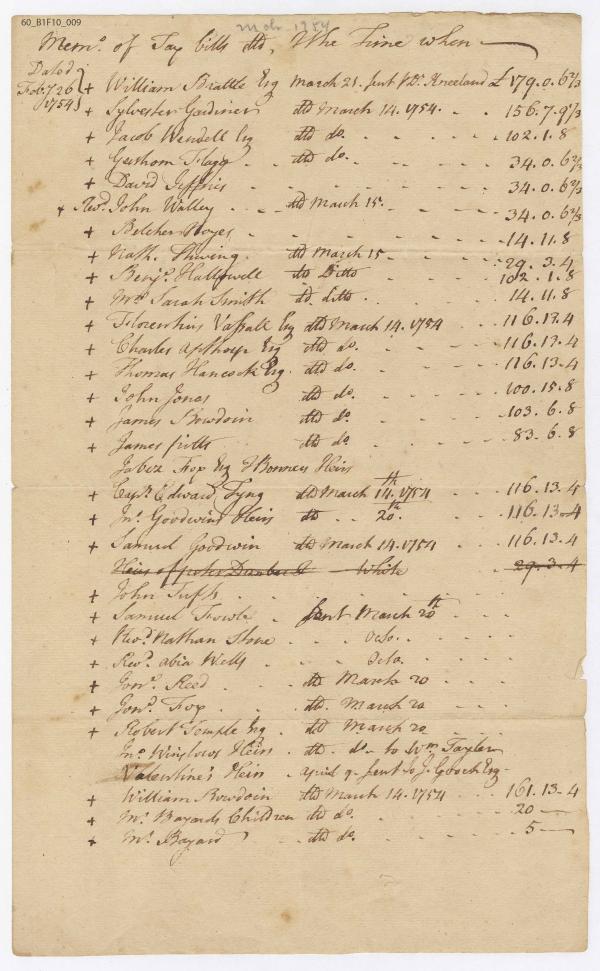 60_B1F10_009
Mch 1754
Memo. of Tax bills dld, & the Time when
Dated
Feb. 7 26
1754
+ William Brattle Esq March 21. sent P Dr. Kneeland £179.0.6 2/3
+ Sylvester Gardiner dld March 14. 1754. 156.7.9 1/3
+ Jacob Wendell Esq dld do. 102.1.8
+ Gershom Flagg dld do. 34.0.6 2/3
+ David Jeffries 34.0.6 2/3
+ Revd. John Walley dld March 15. 34.0.6 2/3
+ Belcher Noyes 14.11.8
+ Nath. Thwing dld March 15 29.3.4
+ Benja. Hallowell dld Ditto 102.1.8
+ Mrs Sarah Smith dd. ditto. 14.11.8
+ Florentius Vassall Esq dld March 14. 1754 116.13.4
+ Charles Apthorp Esq dld do. 116.13.4
+ Thomas Hancock Esq. dld do. 116.13.4
+ John Jones dld do. 100.15.8
+ James Bowdoin dld do. 103.6.8
+ James Pitts dld do. 83.6.8
Jabez Fox Esq & Bonners Heirs
+ Capt. Edward Tyng dld March 14th. 1754 116.13.4
+ Jno. Goodwins Heirs dld 20th. 116.13.4
+ Samuel Goodwin dld March 14. 1754 116.13.4
Heirs of White 29.3.4
+ John Tufts
+ Samuel Fowle sent March 20th
+ Revd. Nathan Stone
+ Revd. Abia Wells
+ Jona. Reed dld March 20
+ Jona. Fox dld. March 20
+ Robert Temple Esq. dld March 20
Jno. Winslows Heirs dld. do to Wm. Tayler
Valentine's Heirs April 9. sent to J. Gooch Esq
+ William Bowdoin dld March 14. 1754 161.13.4
+ Mr. Bayards Children dld do. 20
+ Mr. Bayard dld do. 5